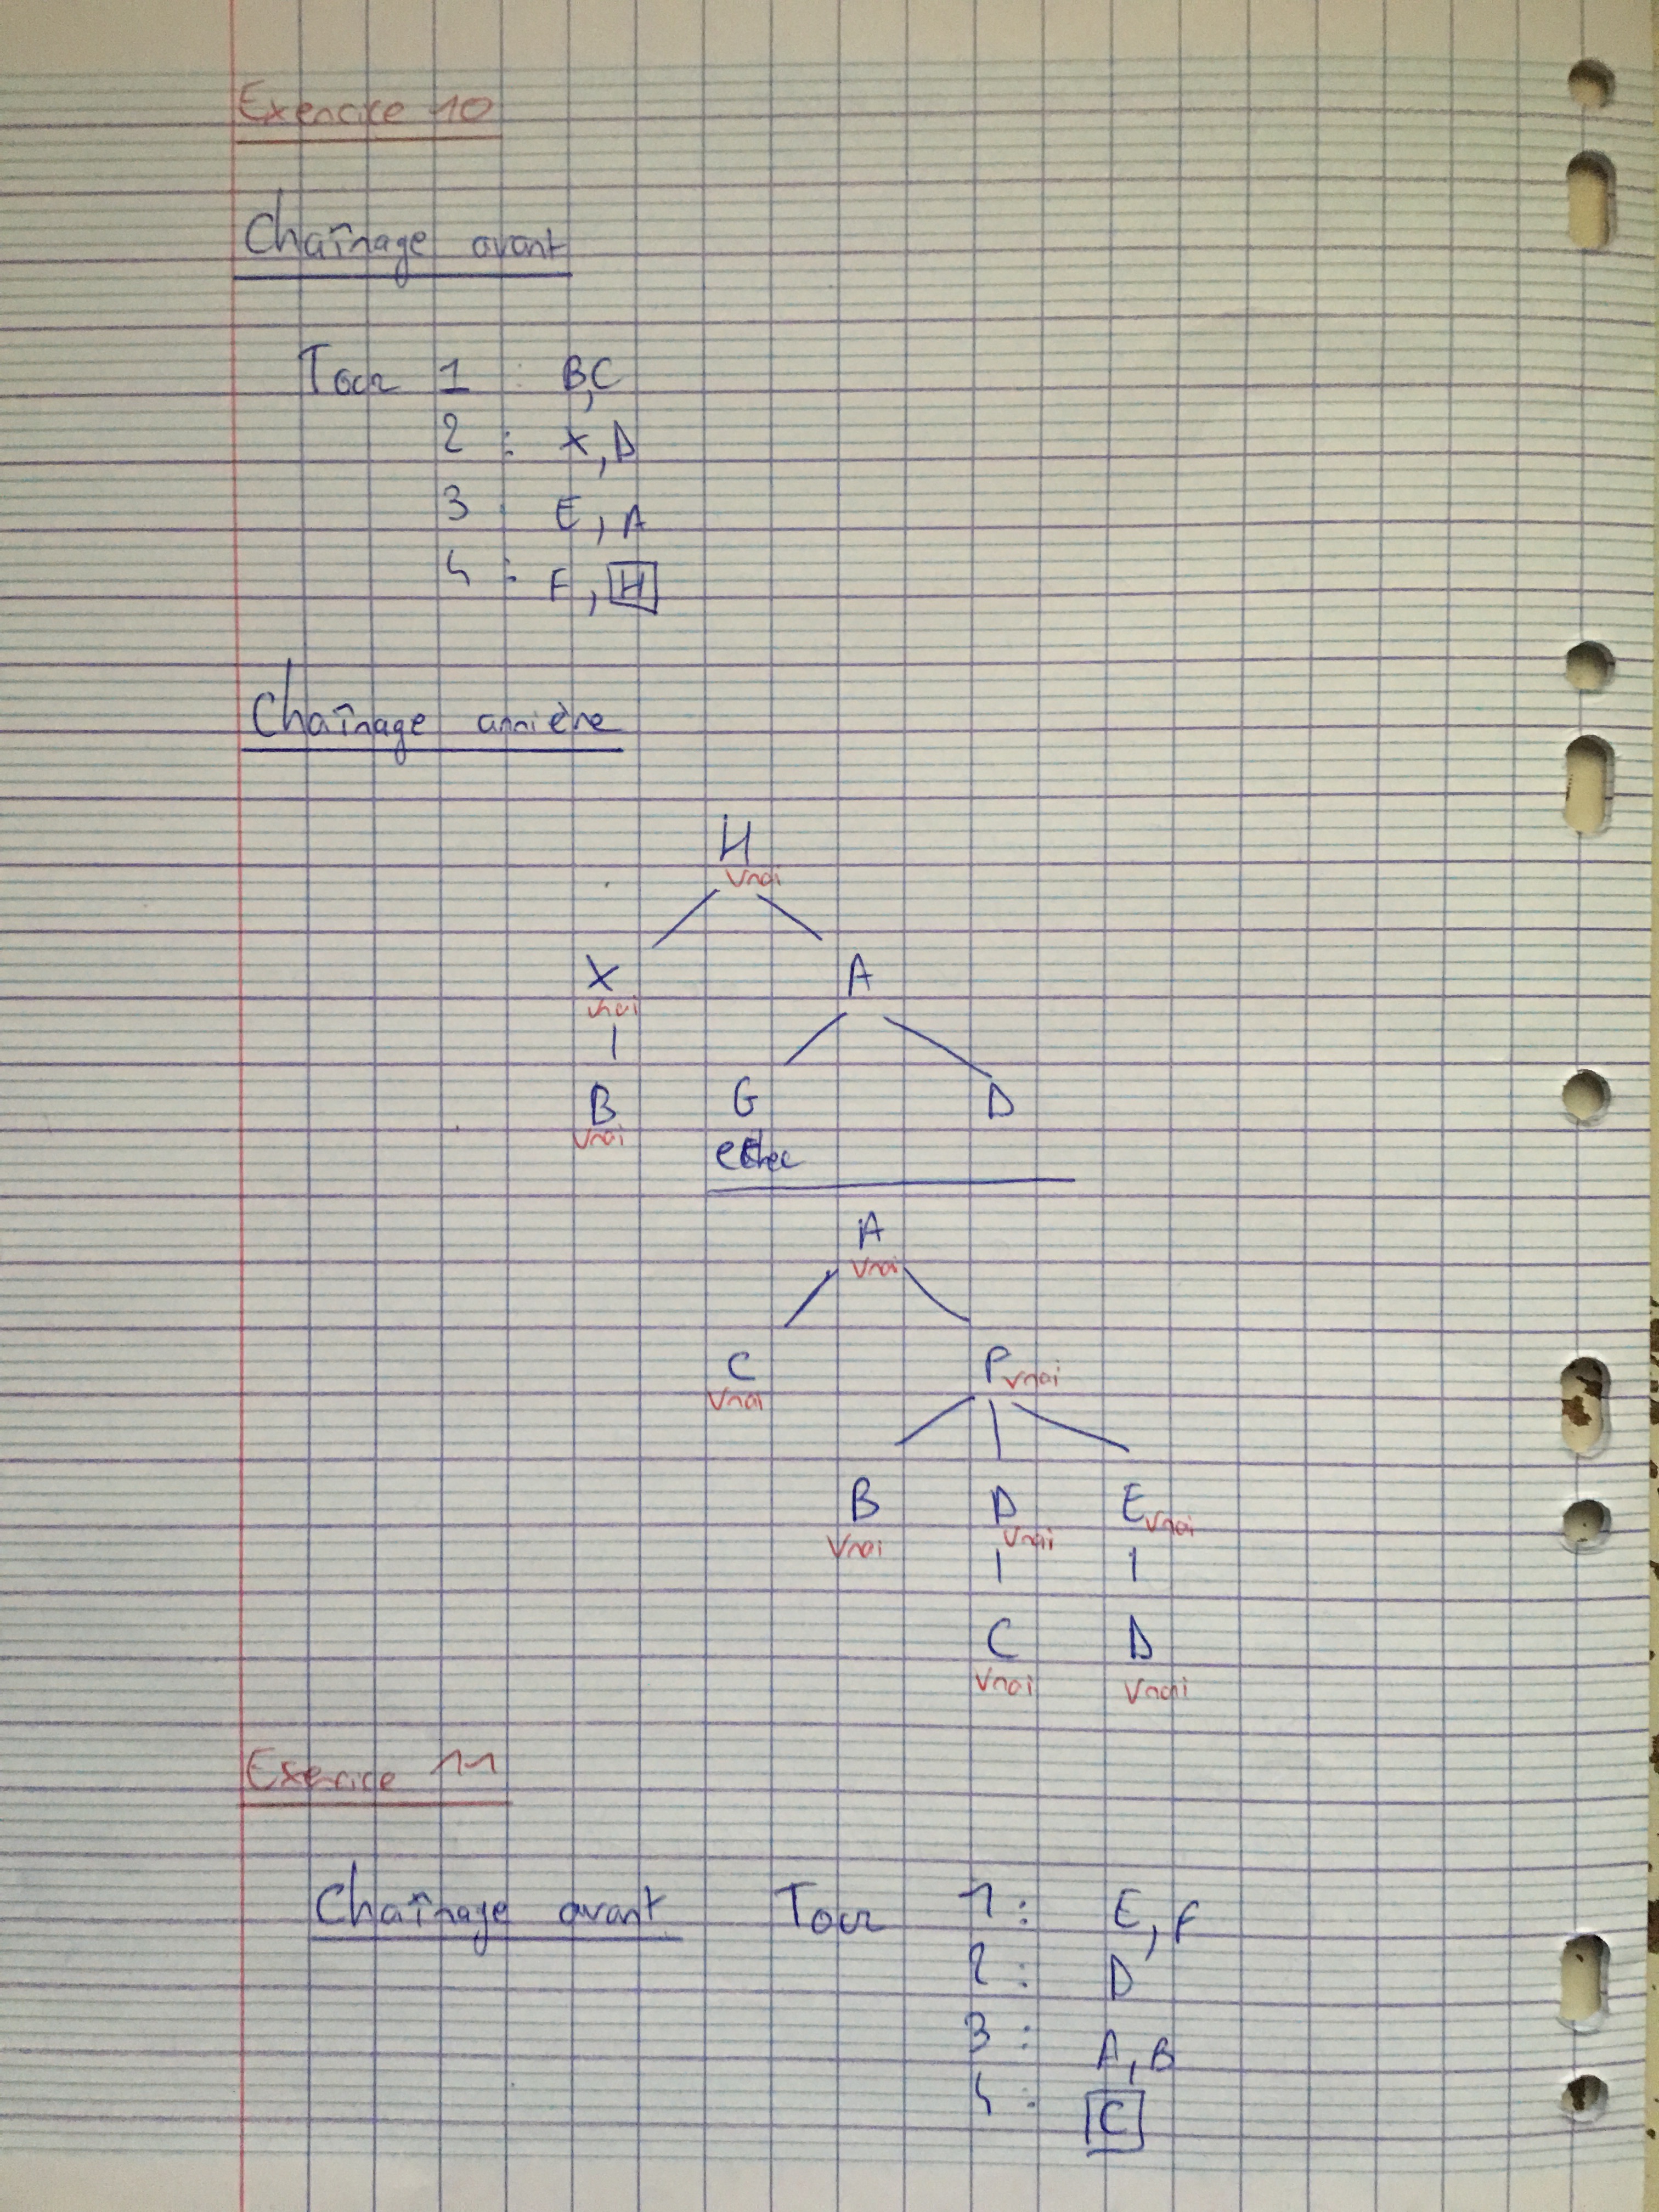 Exercice 10
Chaînage avant
Tour 1 : B,C
2 : X,D
3 : E,A
4 : F,H
Chaînage arrière
H
Vrai
X A
Vrai
B G D
Vrai echec
A
Vrai
C F Vrai
Vrai
B D E Vrai
Vrai Vrai
C D
Vrai Vrai
Exercice 11
Chaînage avant Tour 1 : E,F
2 : D
3 : A,B
4 : C